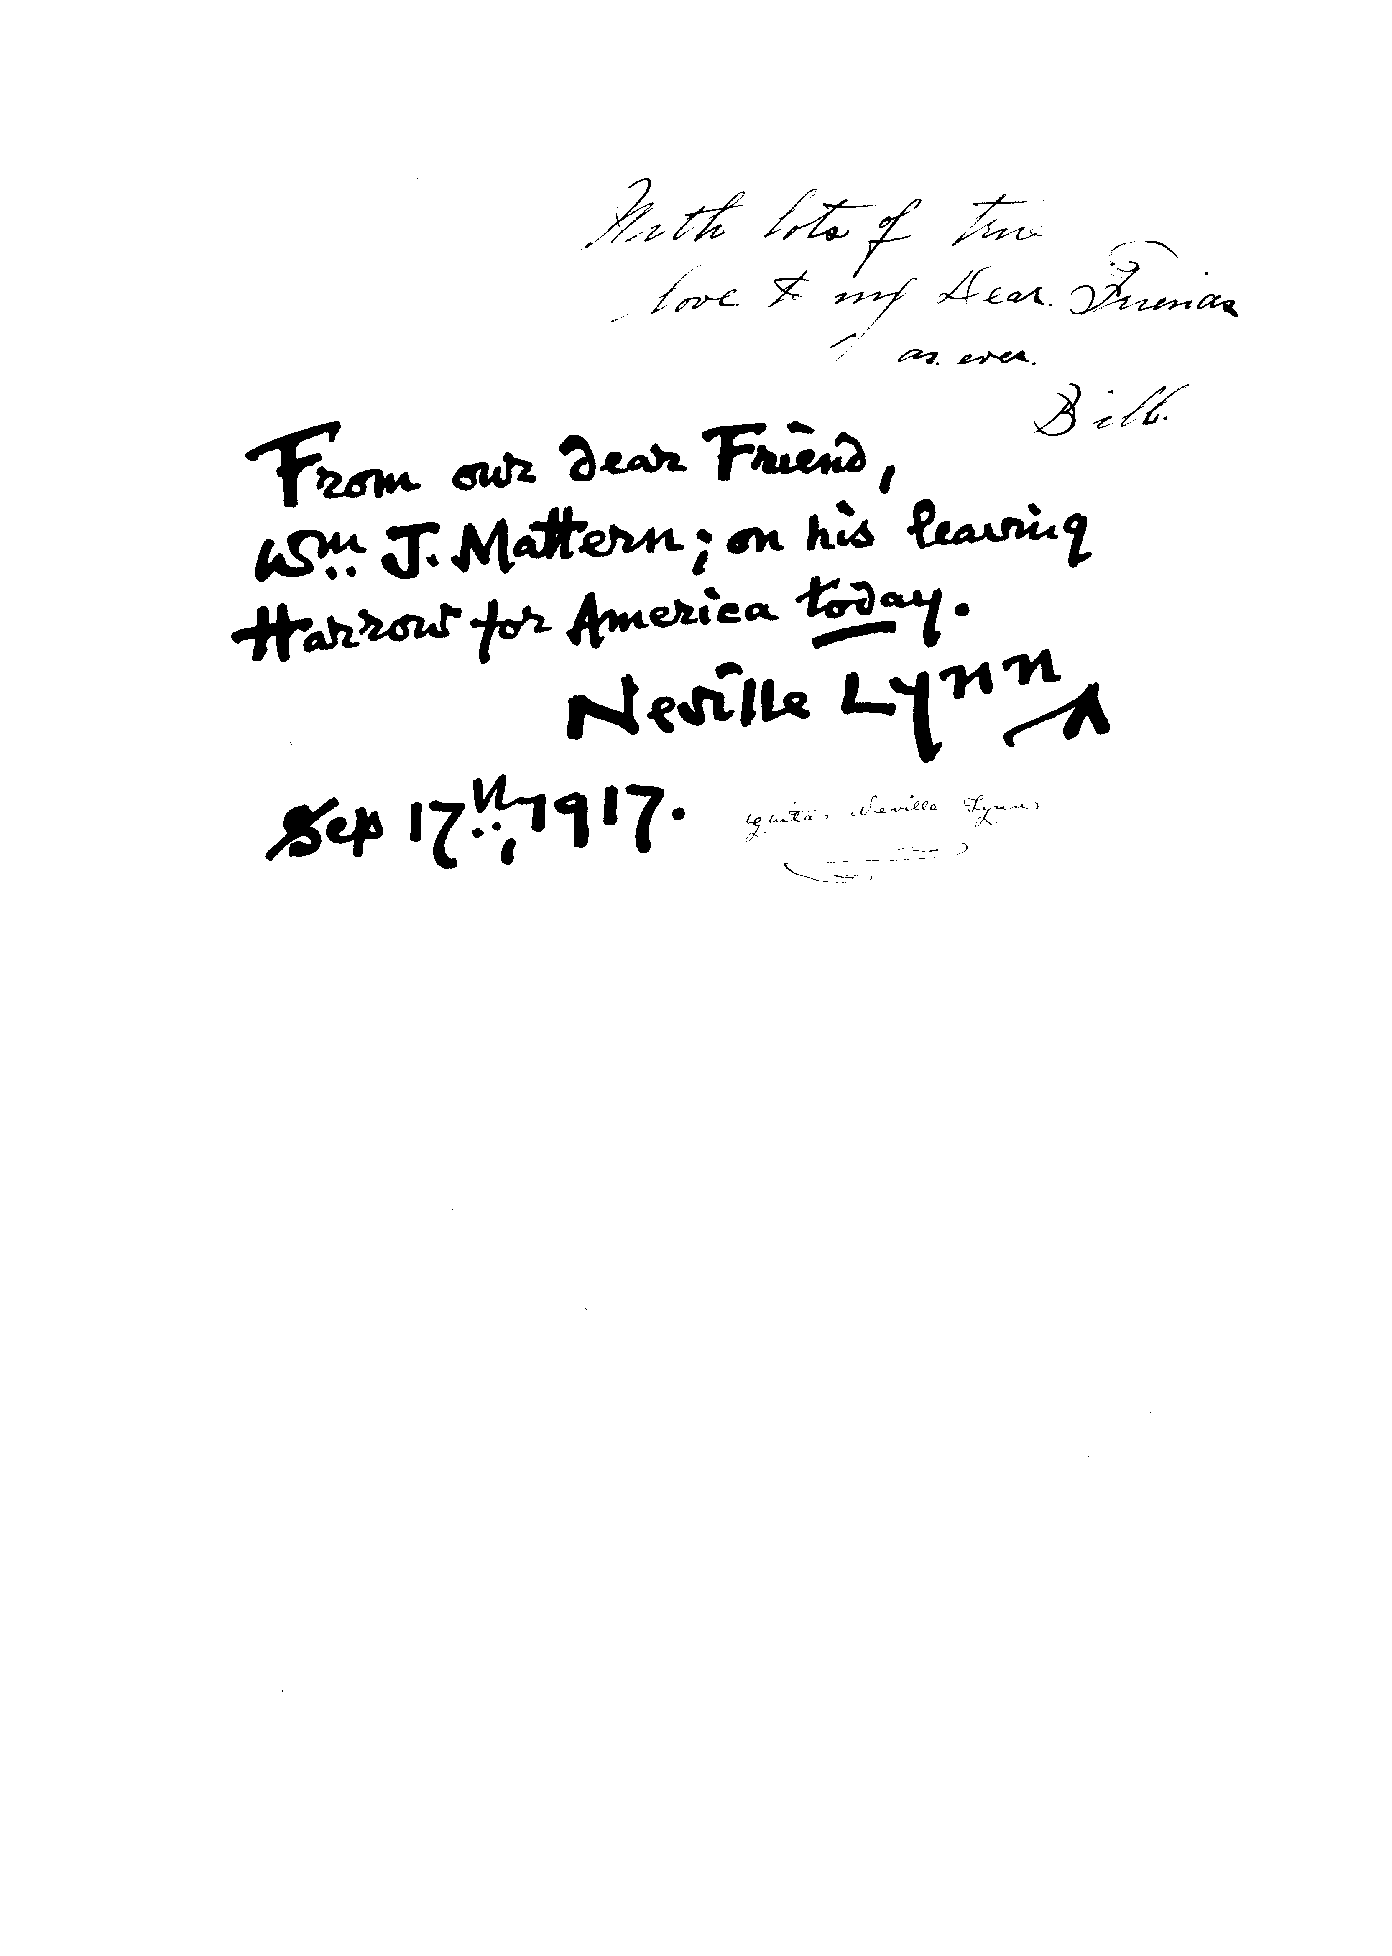 With lots of true
love to my Dear Friends
as ever.
Bill.
From our dear Friend,
Wm. J. Mattern; on his leaving
Harrow for America today.
Neville Lynn
Sep 17th, 1917.
Neville Lynn,